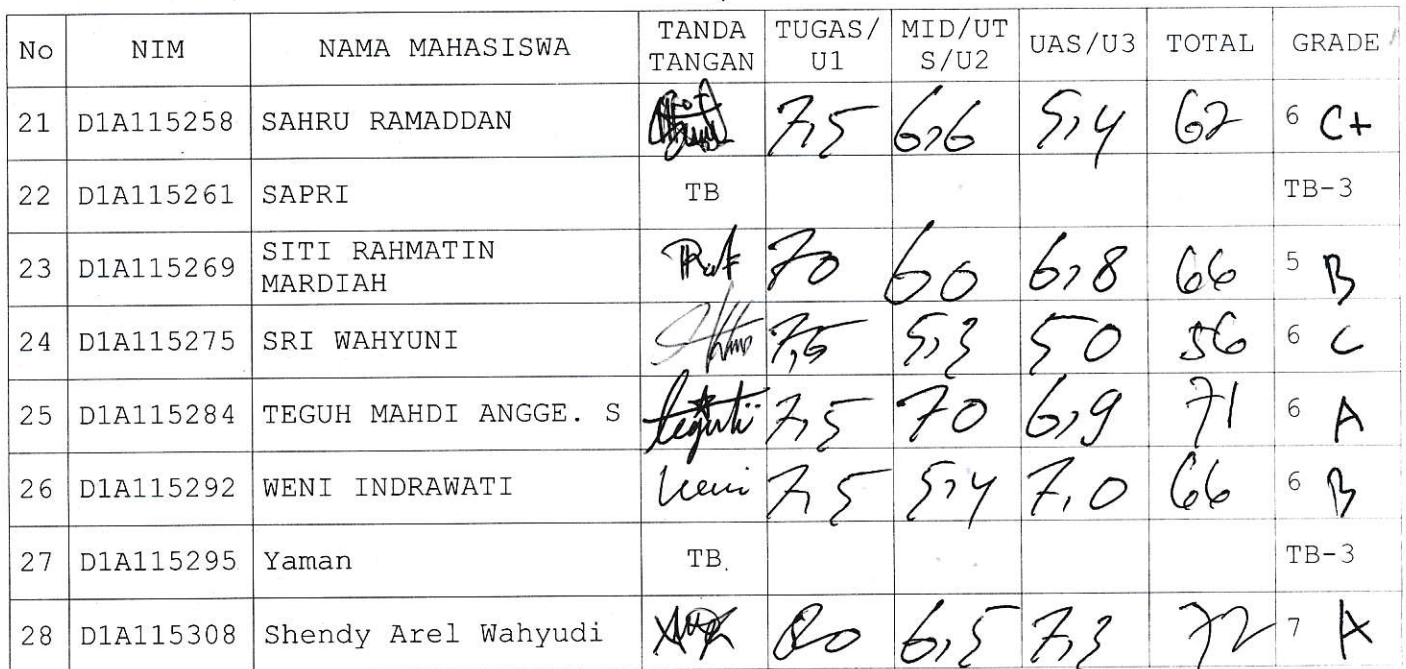 No NIM NAMA MAHASISWA TANDA TANGAN TUGAS/ U1 MID/UT S/U2 UAS/U3 TOTAL GRADE
21 D1A115258 SAHRU RAMADDAN 7,5 6,6 5,4 62 6 C+
22 D1A115261 SAPRI TB TB-3
23 D1A115269 SITI RAHMATIN MARDIAH 70 60 6,8 66 5 B
24 D1A115275 SRI WAHYUNI 5,3 50 56 6 C
25 D1A115284 TEGUH MAHDI ANGGE. S teguh 7,5 70 6,9 71 6 A
26 D1A115292 WENI INDRAWATI Weni 7,5 5,4 7,0 66 6 B
27 D1A115295 Yaman TB TB-3
28 D1A115308 Shendy Arel Wahyudi 80 6,5 7,3 72 7 A